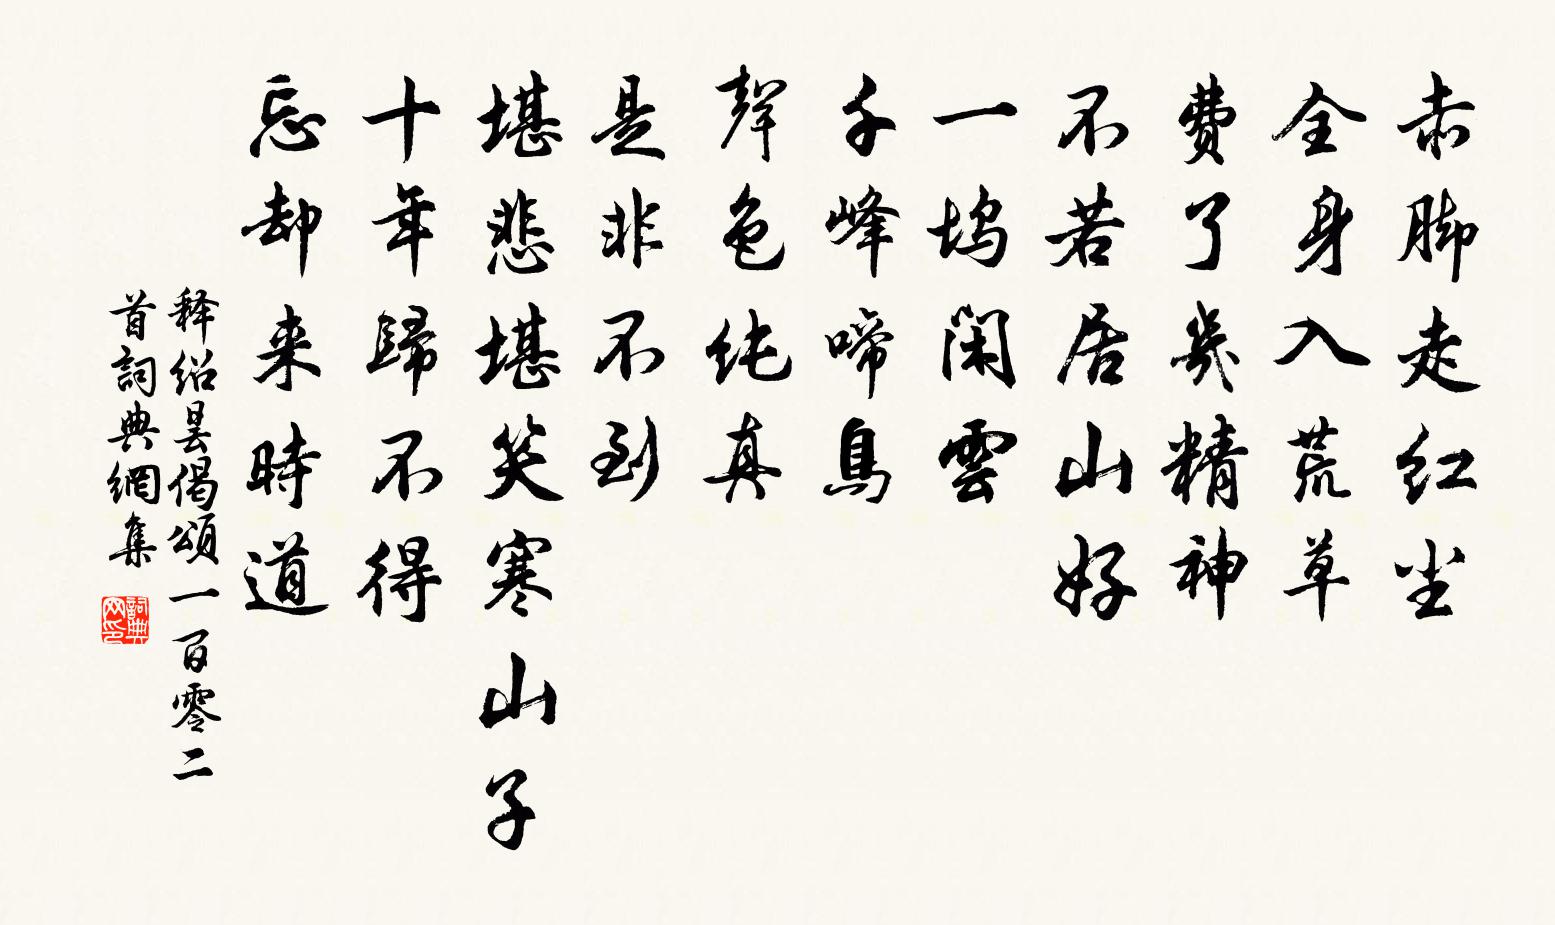 赤脚走红尘
全身入荒草
费了幾精神
不若居山好
一坞闲雲
千峰啼鳥
聲色纯真
是非不到
堪悲堪笑寒山子
十年歸不得
忘却来時道
释绍昙偈頌一百零二
首詞典網集
詞典网印